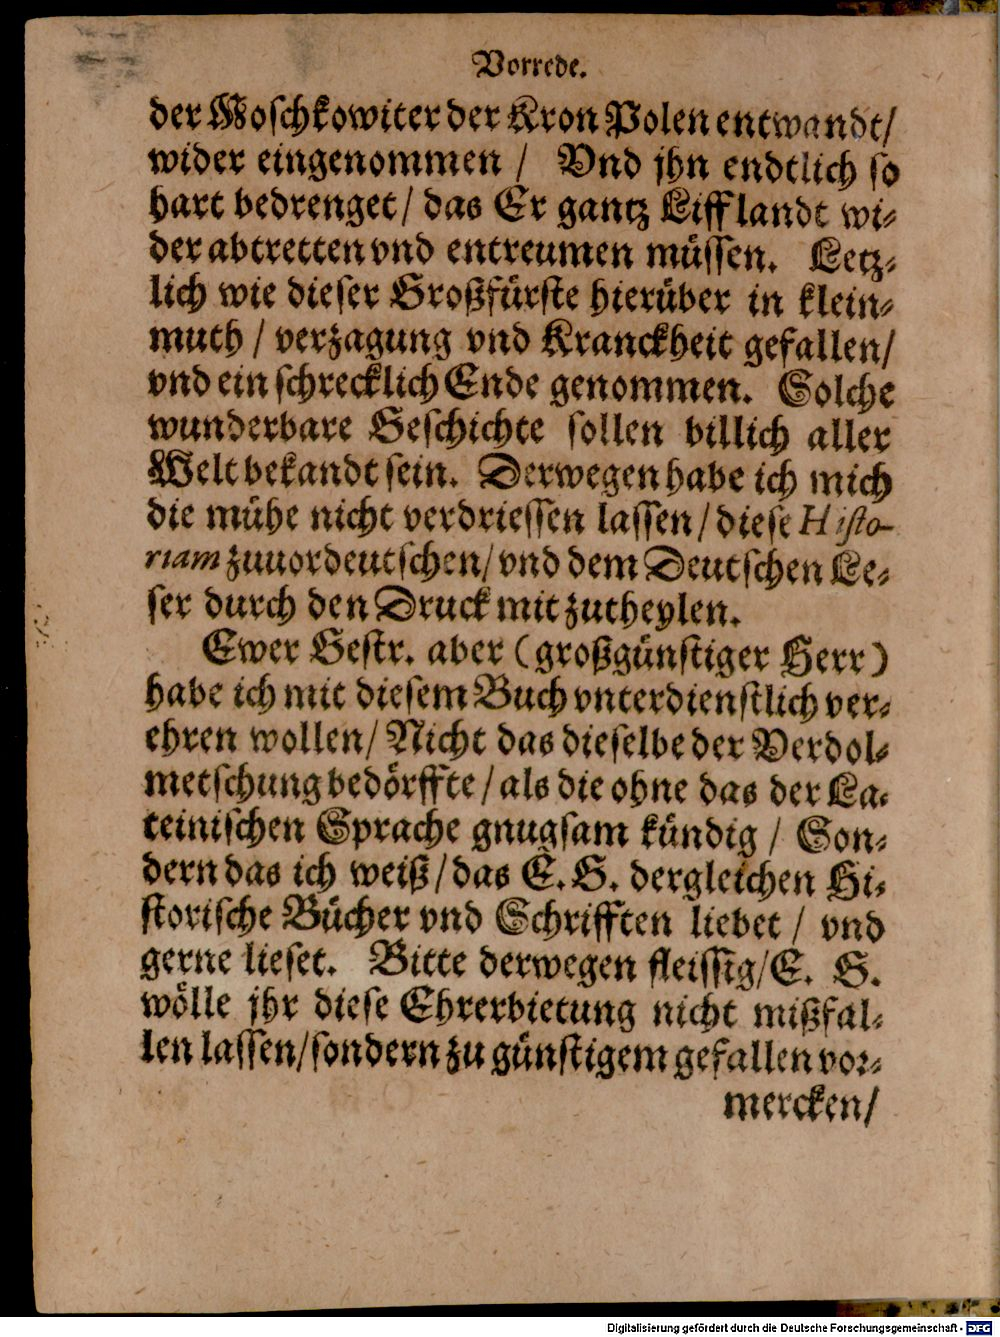 Vorrede.
der Moschkowiter der Kron Polen entwandt/
wider eingenommen / Vnd jhn endtlich so
hart bedrenget/ das Er gantz Liffflandt wi-
der abtretten vnd entreumen müssen. Letz-
lich wie dieser Großfürste hierüber in klein-
muth / verzagung vnd Kranckheit gefallen/
vnd ein schrecklich Ende genommen. Solche
wunderbare Geschichte sollen billich aller
Welt bekandt sein. Derwegen habe ich mich
die mühe nicht verdriessen lassen/ diese Histo-
riam zuuordeutschen/ vnd dem Deutschen Le-
ser durch den Druck mit zutheylen.
Ewer Gestr. aber (großgünstiger Herr)
habe ich mit diesem Buch vnterdienstlich ver-
ehren wollen/ Nicht das dieselbe der Verdol-
metschung bedörffte/ als die ohne das der La-
teinischen Sprache gnugsam kündig / Son-
dern das ich weiß/ das E. G. dergleichen Hi-
storische Bücher vnd Schrifften liebet / vnd
gerne lieset. Bitte derwegen fleissig/ E. G.
wölle jhr diese Ehrerbietung nicht mißfal-
len lassen/ sondern zu günstigem gefallen vor-
mercken/
Digitalisierung gefördert durch die Deutsche Forschungsgemeinschaft - DFG